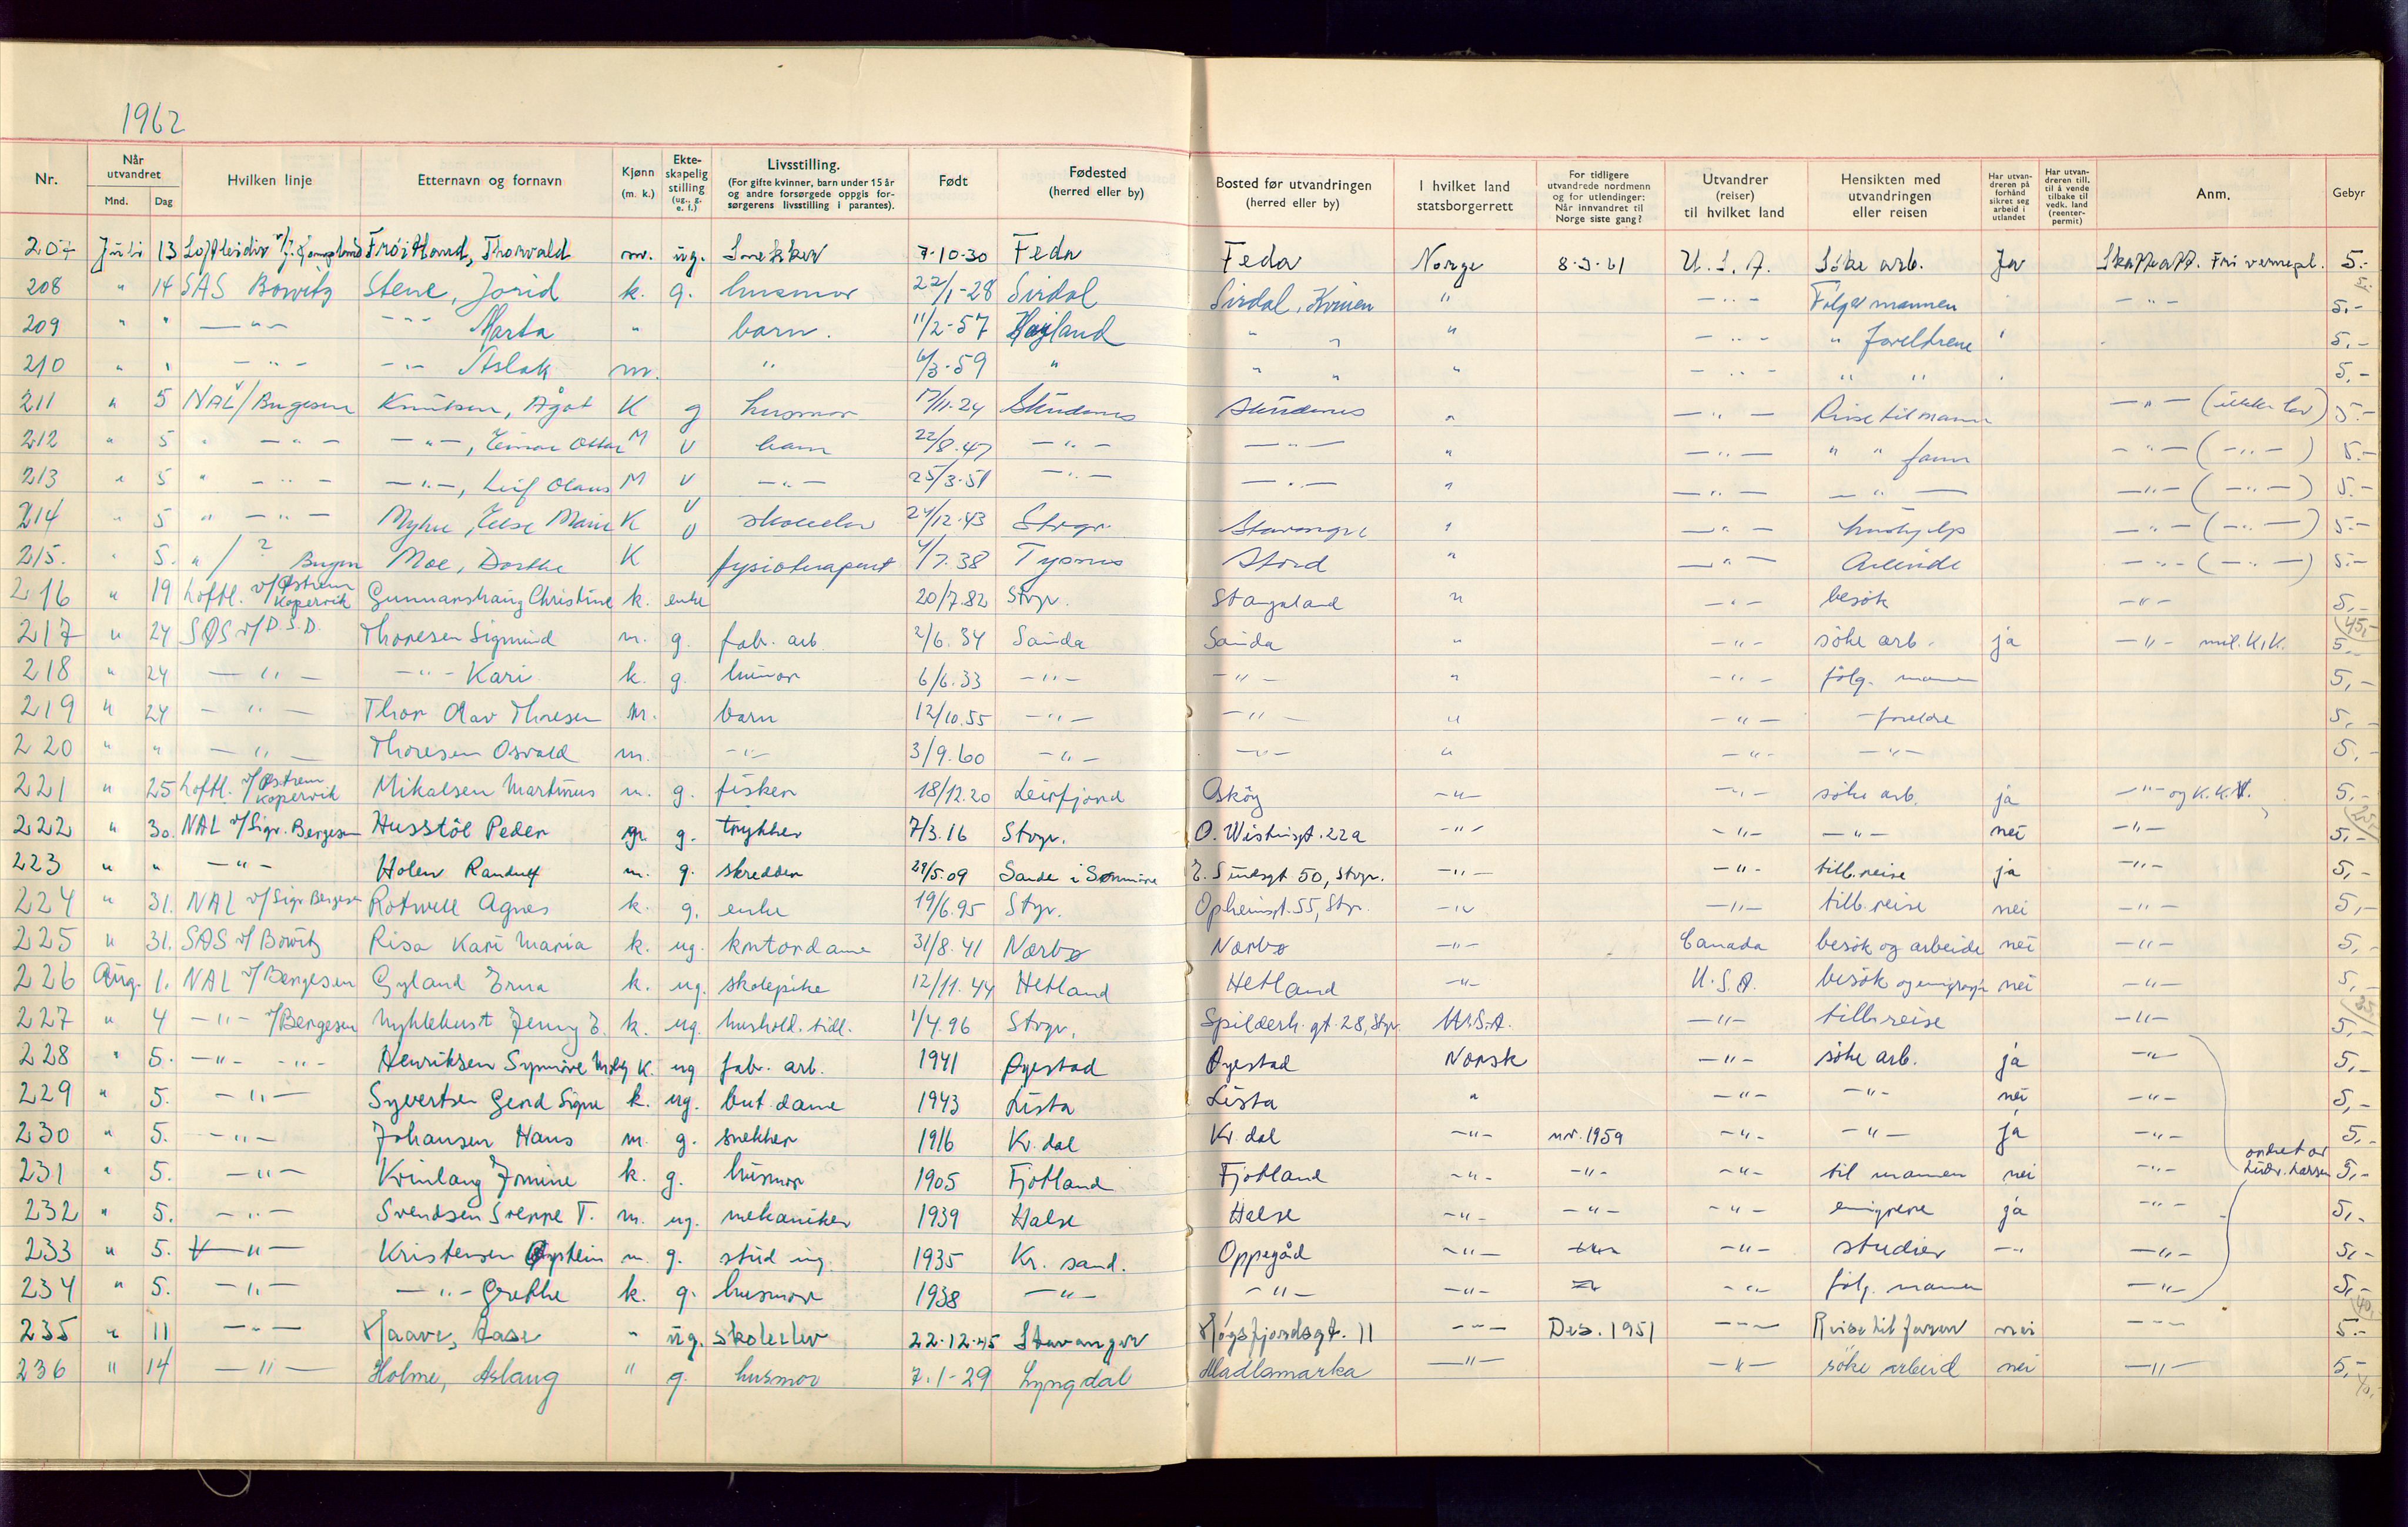 1962
Nr. Når utvandret Mnd. Dag Hvilken linje Etternavn og fornavn Kjønn (m. k.) Ekte-skapelig stilling (ug., g. e. f.) Livsstilling. (For gifte kvinner, barn under 15 år og andre forsørgede oppgis for-sørgerens livsstilling i parantes). Født Fødested (herred eller by) Bosted før utvandringen (herred eller by) I hvilket land statsborgerrett For tidligere utvandrede nordmenn og for utlendinger: Når innvandret til Norge siste gang? Utvandrer (reiser) til hvilket land Hensikten med utvandringen eller reisen Har utvan-dreren på forhånd sikret seg arbeid i utlandet Har utvan-dreren till. til å vende tilbake til vedk. land (reenter-permit) Anm. Gebyr
207 Juli 13 Thorvald m. ug. Snekker 7.10.30 Feda Feda Norge 8.3.61 U.S.A. Søke arb. Ja Skatteatt. Fri vernepl. 5.-
208 " 14 SAS Bowitz Stene, Jorid k. g. husmor 22/1-28 Sirdal Sirdal, Kvinen " -"- Følger mannen -"- 5,-
209 " " -"- -"- Marta " barn. 11/2-57 Høyland " " " -"- " foreldrene 5,-
210 " " -"- -"- Aslak m. " 6/3-59 " " " " -"- " " 5,-
211 " 5 NAL v/Bergesen Knutsen, Ågot K g husmor 17/11.24 Skudenes Skudenes " -"- Reise til mann -"- (ikke lov) 5.-
212 " 5 " -"- -"-, Einar Ottar M U barn 22/8.47 -"- -"- " -"- " " faren -"- (-"-) 5.-
213 " 5 " -"- -"-, Leif Olaus M U -"- 25/3.51 -"- -"- " -"- -"- -"- (-"-) 5.-
214 " 5 " -"- Myhre, Else Marie K U skoleelev 24/12.43 Stvgr. Stavanger " -"- hushjelp -"- (-"-) 5.-
215. " 5. " / ? Bergen Moe, Dorthe K fysioterapeut 4/7.38 Tysnes Stord " -"- Arbeide -"- (-"-) 5.-
216 " 19 Loftl. v/Østrem Kopervik Gunnarshaug Christine k. enke 20/7.82 Stvgr. Stangaland " -"- besøk -"- 5,-
45,-
217 " 24 SAS v/D.S.D. Thoresen Sigmund m. g. fab. arb. 2/6.34 Sauda Sauda " -"- søke arb. ja -"- mil. K.K. 5,-
218 " 24 -"- -"- Kari k. g. husmor 6/6.33 -"- -"- " -"- følg. mannen 5,-
219 " 24 -"- Thor Olav Thoresen m. barn 12/10.55 -"- -"- " -"- - foreldre 5,-
220 " " -"- Thoresen Osvald m. -"- 3/9.60 -"- -"- " -"- -"- 5,-
221 " 25 Loftl. v/Østrem Kopervik Mikalsen Martinus m. g. fisker 18/12.20 Leirfjord Askøy -"- -"- søke arb. ja -"- og K.K. 5,-
222 " 30. NAL v/Sigv. Bergesen Husstøl Peder m. g. trykker 7/3.16 Stvgr. O. Wistingt. 22a -"- -"- -"- nei -"- 5,-
223 " " -"- Holen Randulf m. g. skredder 29/5.09 Sande i Sunnmøre E. Sundsgt 50, Stvgr. -"- -"- tilb.reise ja -"- 5,-
224 " 31. NAL v/Sigv. Bergesen Rotwell Agnes k. g. enke 19/6.95 Stgr. Opheimsgt. 55, Stgr. -"- -"- tilb.reise nei -"- 5,-
225 " 31. SAS v/Bowitz Risa Kari Maria k. ug. kontordame 31/8.41 Nærbø Nærbø -"- Canada besøk og arbeide nei -"- 5,-
226 Aug. 1. NAL v/Bergesen Gyland Erna k. ug. skolepike 12/11.44 Hetland Hetland -"- U.S.A. besøk nei -"- 5,-
35,-
227 " 4 -"- v/Bergesen Nyklekust Jenny E. k. ug. hushold. tidl. 1/4.96 Stvgr. Spilderh. gt. 28, Stgr. U.S.A. -"- tilb.reise -"- 5,-
228 " 5. -"- -"- Henriksen Synnøve K. ug fab. arb. 1941 Øyestad Øyestad Norsk -"- søke arb. ja -"- 5,-
229 " 5. -"- Syvertsen Gerd Signe k. ug. but. dame 1943 Lista Lista " -"- -"- nei -"- 5,-
230 " 5. -"- Johansen Hans m. g. snekker 1916 Kv. dal Kv. dal -"- nov. 1959 -"- -"- ja -"- 5,-
231 " 5. -"- Kvinlaug Jomine k. g. husmor 1905 Fjotland Fjotland -"- -"- -"- til mannen nei -"- ordnet av Ludv. Larsen 5,-
232 " 5. -"- Svendsen Sreppe T. m. ug. mekaniker 1939 Halse Halse -"- -"- -"- emigrere ja -"- 5,-
233 " 5. -"- Kristensen Øystein m. g. stud ing. 1935 Kr. sand. Oppegåd -"- -"- studier -"- -"- 5,-
234 " 5. -"- -"- Grethe k. g. husmor 1938 -"- -"- -"- -"- følg. mannen -"- 5,-
40,-
235 " 11 -"- Haave, Aase " ug. skoleelev 22.12.45 Stavanger Høgsfjordsgt. 11 -"- Des. 1951 -"- Reise til faren nei -"- 5.-
236 " 14 -"- Holme, Aslaug " g. husmor 7.1-29 Lyngdal Madlamarka -"- -"- søke arbeid nei -"- 5,-